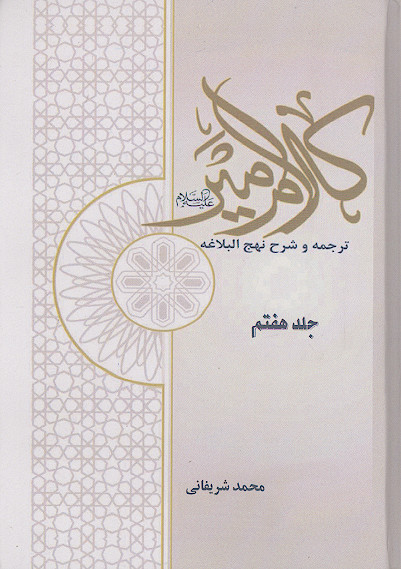 کلام امیر
علیه‌السلام
ترجمه و شرح نهج البلاغه
جلد هفتم
محمد شریفانی